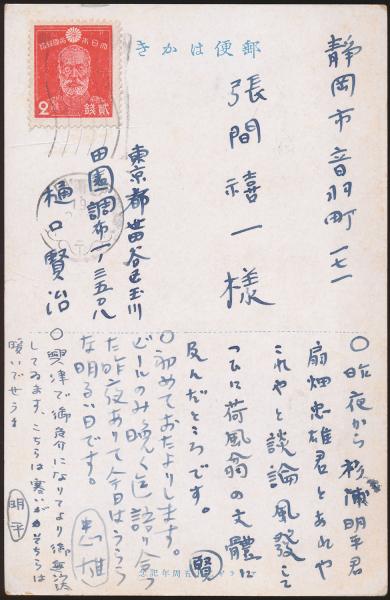 郵便はかき
大日本帝國郵便
2
貳錢
靜岡市音羽町一七一
張間禧一様
東京都世田谷区玉川
田園調布一ノ三五〇ノ八
樋口賢治
〇昨夜から杉浦明平君
扇畑忠雄君とあれや
これやと談論風発して
つひに荷風翁の文體に
及んだところです。
賢
〇初めておたよりします。
ビールのみ晩く迄語り合つ
た昨夜ありて今日はうらら
な明るい日です。
忠雄
〇興津で御厄介になりてより御無沙汰
してゐます。こちらは寒いがそちらは
暖いでせうな
明平
周年記念